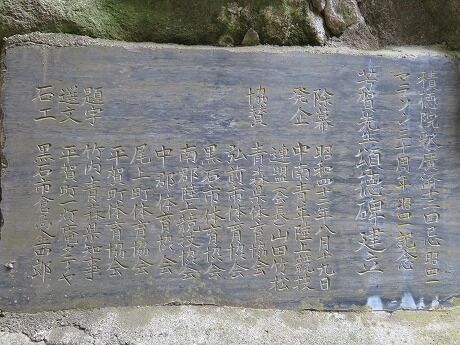 積徳院
マラソン三十周年 記念
芳賀先生頌徳碑建立
除幕 昭和四三年八月十九日
発企 中南青年陸上競技
連盟会長 山田竹松
協賛 青森県体育協会
弘前市体育協会
黒石市体育協会
南郡陸上競技協会
中郡体育協会
尾上町体育協会
平賀町体育協会
題字 竹内青森県知事
選文 平賀町
石工 黒石市